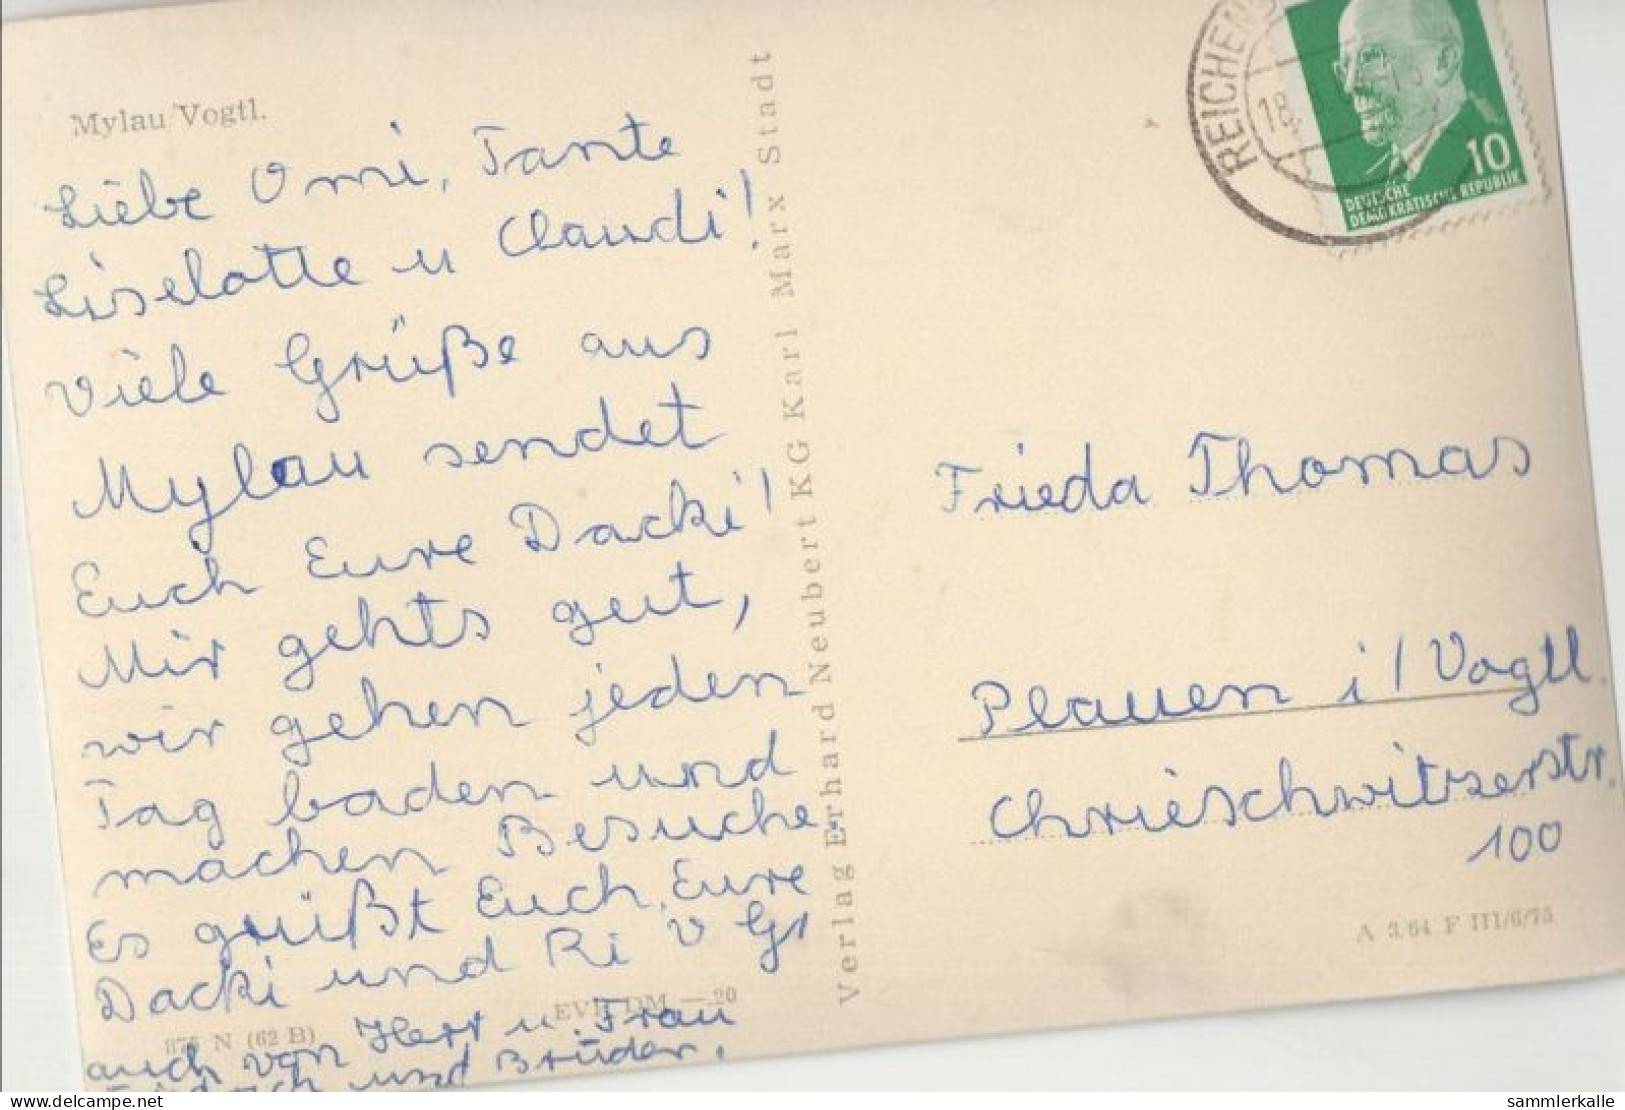 Mylau/Vogtl.
Liebe Omi, Tante
Liselotte u Claudi!
Viele Grüße aus
Mylau sendet
Euch Eure Dacki!
Mir gehts gut,
wir gehen jeden
Tag baden und
machen Besuche.
Es grüßt Euch, Eure
Dacki und Ri v Gr
auch von Herr u. Frau
und Brüder,
875 N (62 B)
EVP DM —.20
Verlag Erhard Neubert KG Karl Marx Stadt
REICHEN
18
10
DEUTSCHE
DEMOKRATISCHE REPUBLIK
Frieda Thomas
Plauen i/Vogtl.
Chrieschwitzerstr.
100
A 3/64 F III/6/75
delcampe.net
sammlerkalle